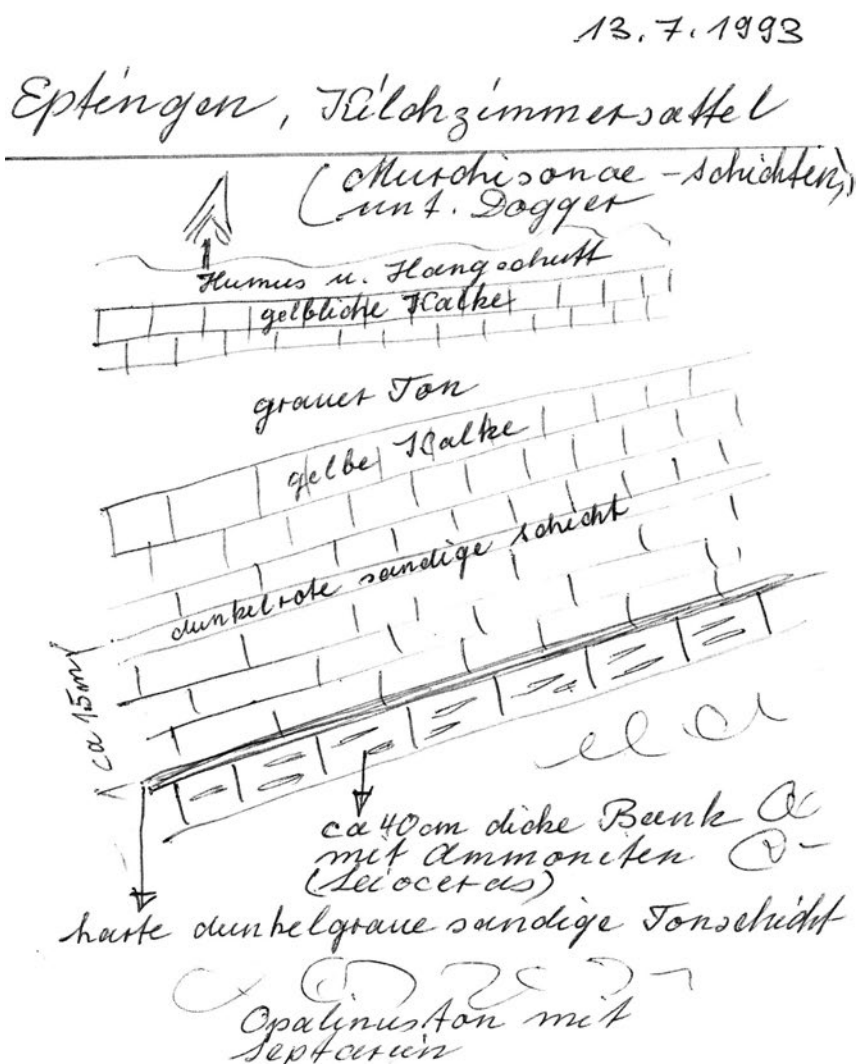 13.7.1993
Eptingen, Kilchzimmersattel
(Murchisonae-schichten,)
unt. Dogger
Humus u. Hangschutt
gelbliche Kalke
grauer Ton
gelbe Kalke
dunkelrote sandige schicht
ca 1.5m
ca 40cm dicke Bank
mit Ammoniten
(Leioceras)
harte dunkelgraue sandige Tonschicht
Opalinuston mit
Septarien